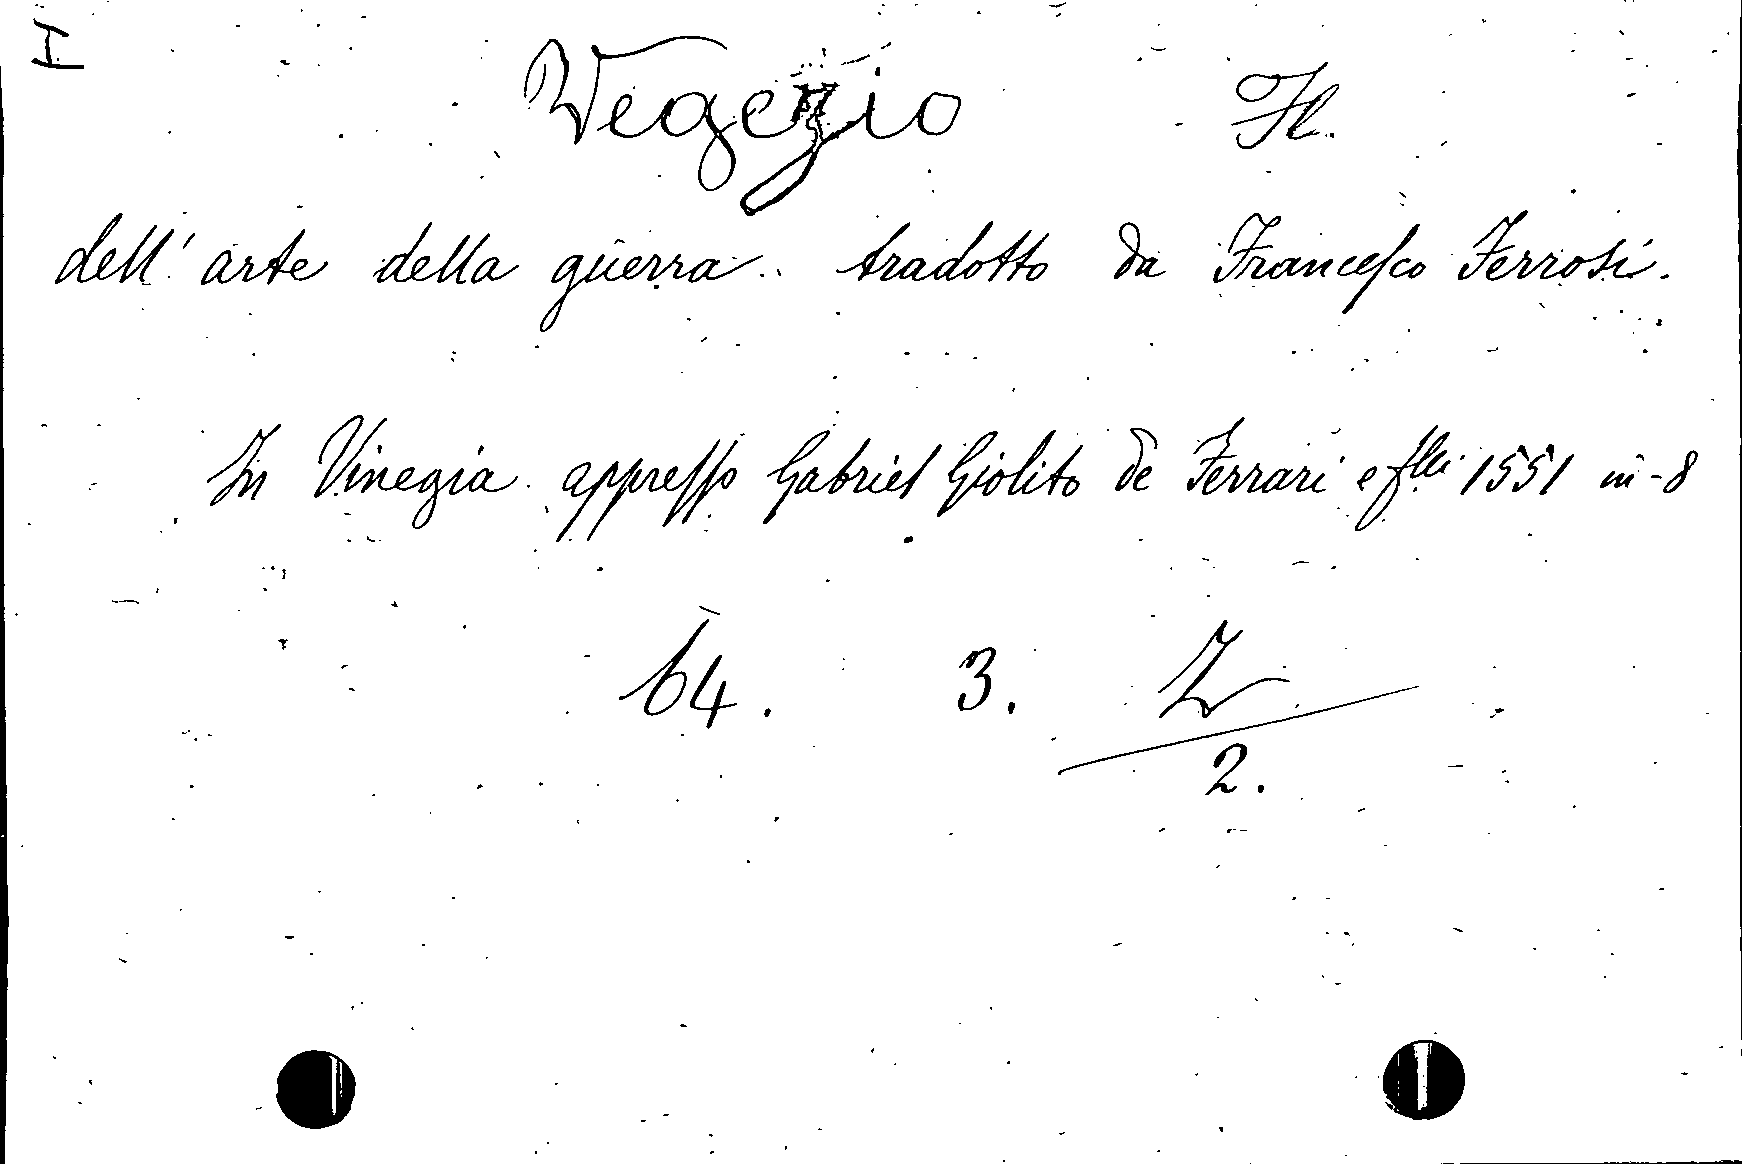 I
Vegezio Fl.
dell' arte della guerra. tradotto da Francesco Ferrosi.
In Vinegia appresso Gabriel Giolito de Ferrari e flli 1551 in-8
64. 3. Z
2.